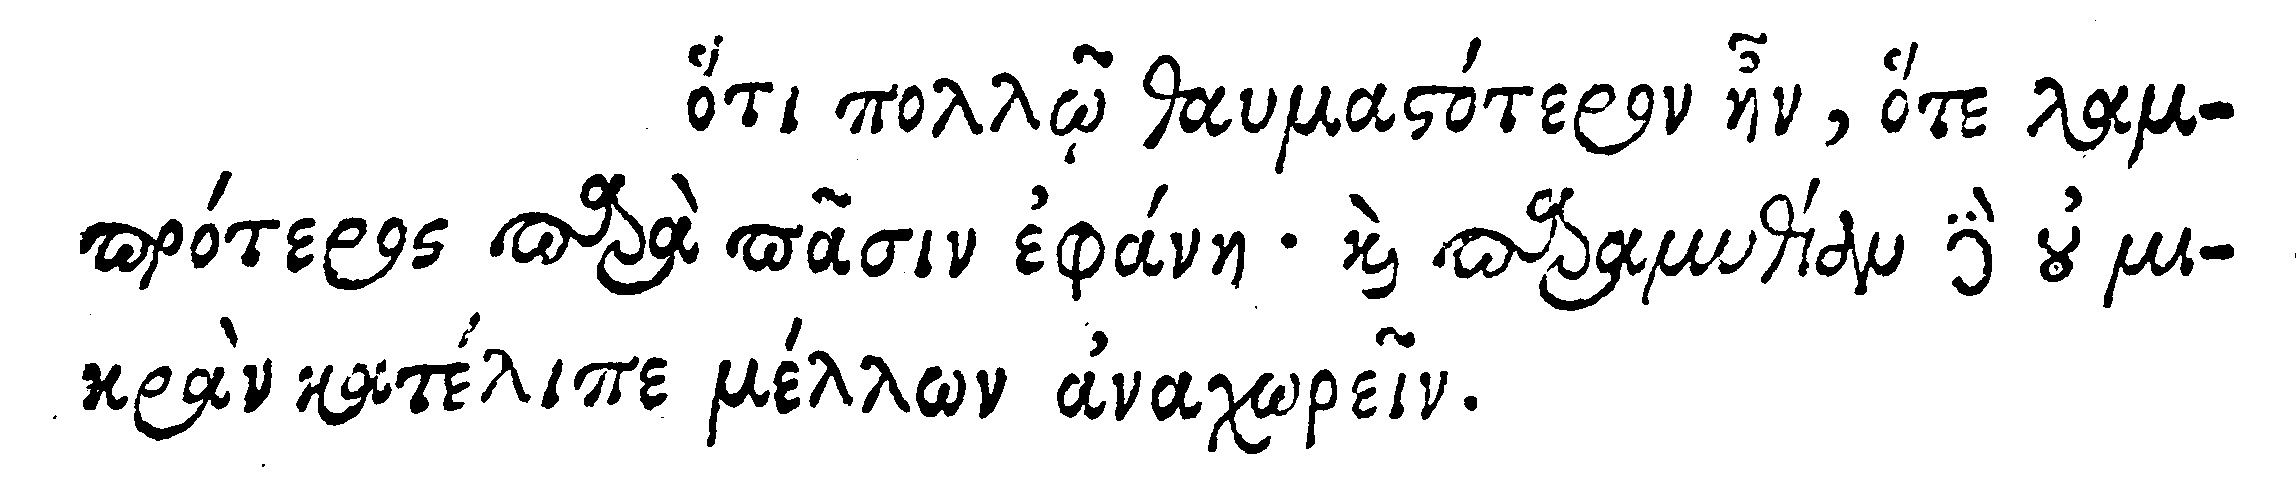 ὅτι πολλῷ θαυμαστότερον ἦν, ὅτε λαμ-
πρότερος παρὰ πᾶσιν ἐφάνη· καὶ παραμυθίαν γὰρ οὐ μι-
κρὰν κατέλιπε μέλλων ἀναχωρεῖν.